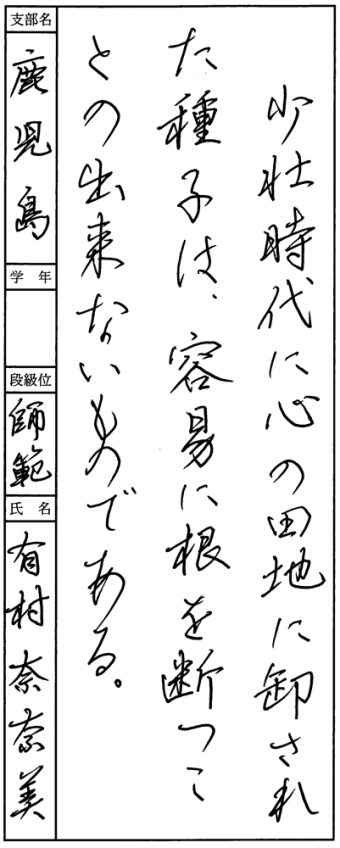 少壮時代に心の田地に卸され
た種子は、容易に根を断つこ
との出来ないものである。
支部名
鹿児島
学年
段級位
師範
氏名
有村奈奈美